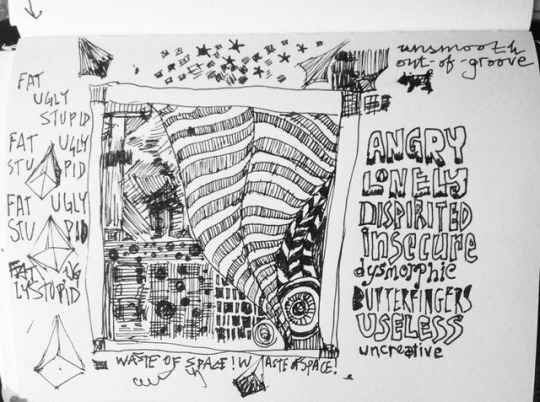 FAT
UGLY
STUPID
FAT UGLY
STUPID
FAT UGLY
STUPID
FAT UG
LYSTUPID
unsmooth
out-of-groove
ANGRY
LONELY
DISPIRITED
insecure
dysmorphic
BUTTERFINGERS
USELESS
uncreative
WASTE OF SPACE! WASTE OF SPACE!